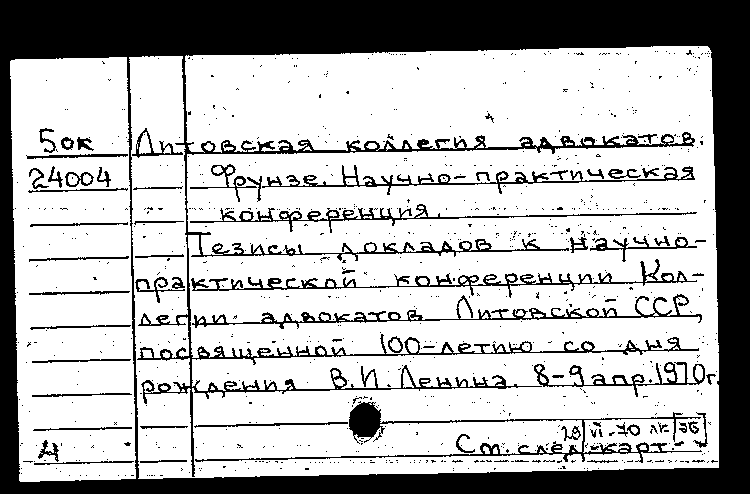 5ок Литовская коллегия адвокатов.
24004 Фрунзе. Научно-практическая
конференция.
Тезисы докладов к научно-
практической конференции Кол-
легии адвокатов Литовской ССР,
посвященной 100-летию со дня
рождения В.И. Ленина. 8-9 апр. 1970г.
29 VI-70 лк ЭБ
См. след. карт.